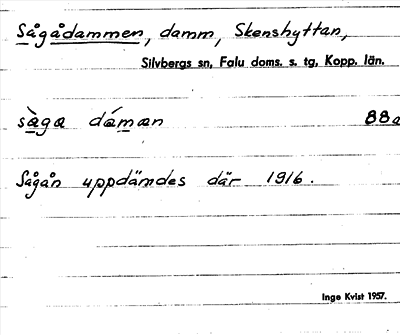 Sågådammen, damm, Skenshyttan,
Silvbergs sn, Falu doms. s. tg, Kopp. län.
sàga dáman 88a
Sågån uppdämdes där 1916.
Inge Kvist 1957.